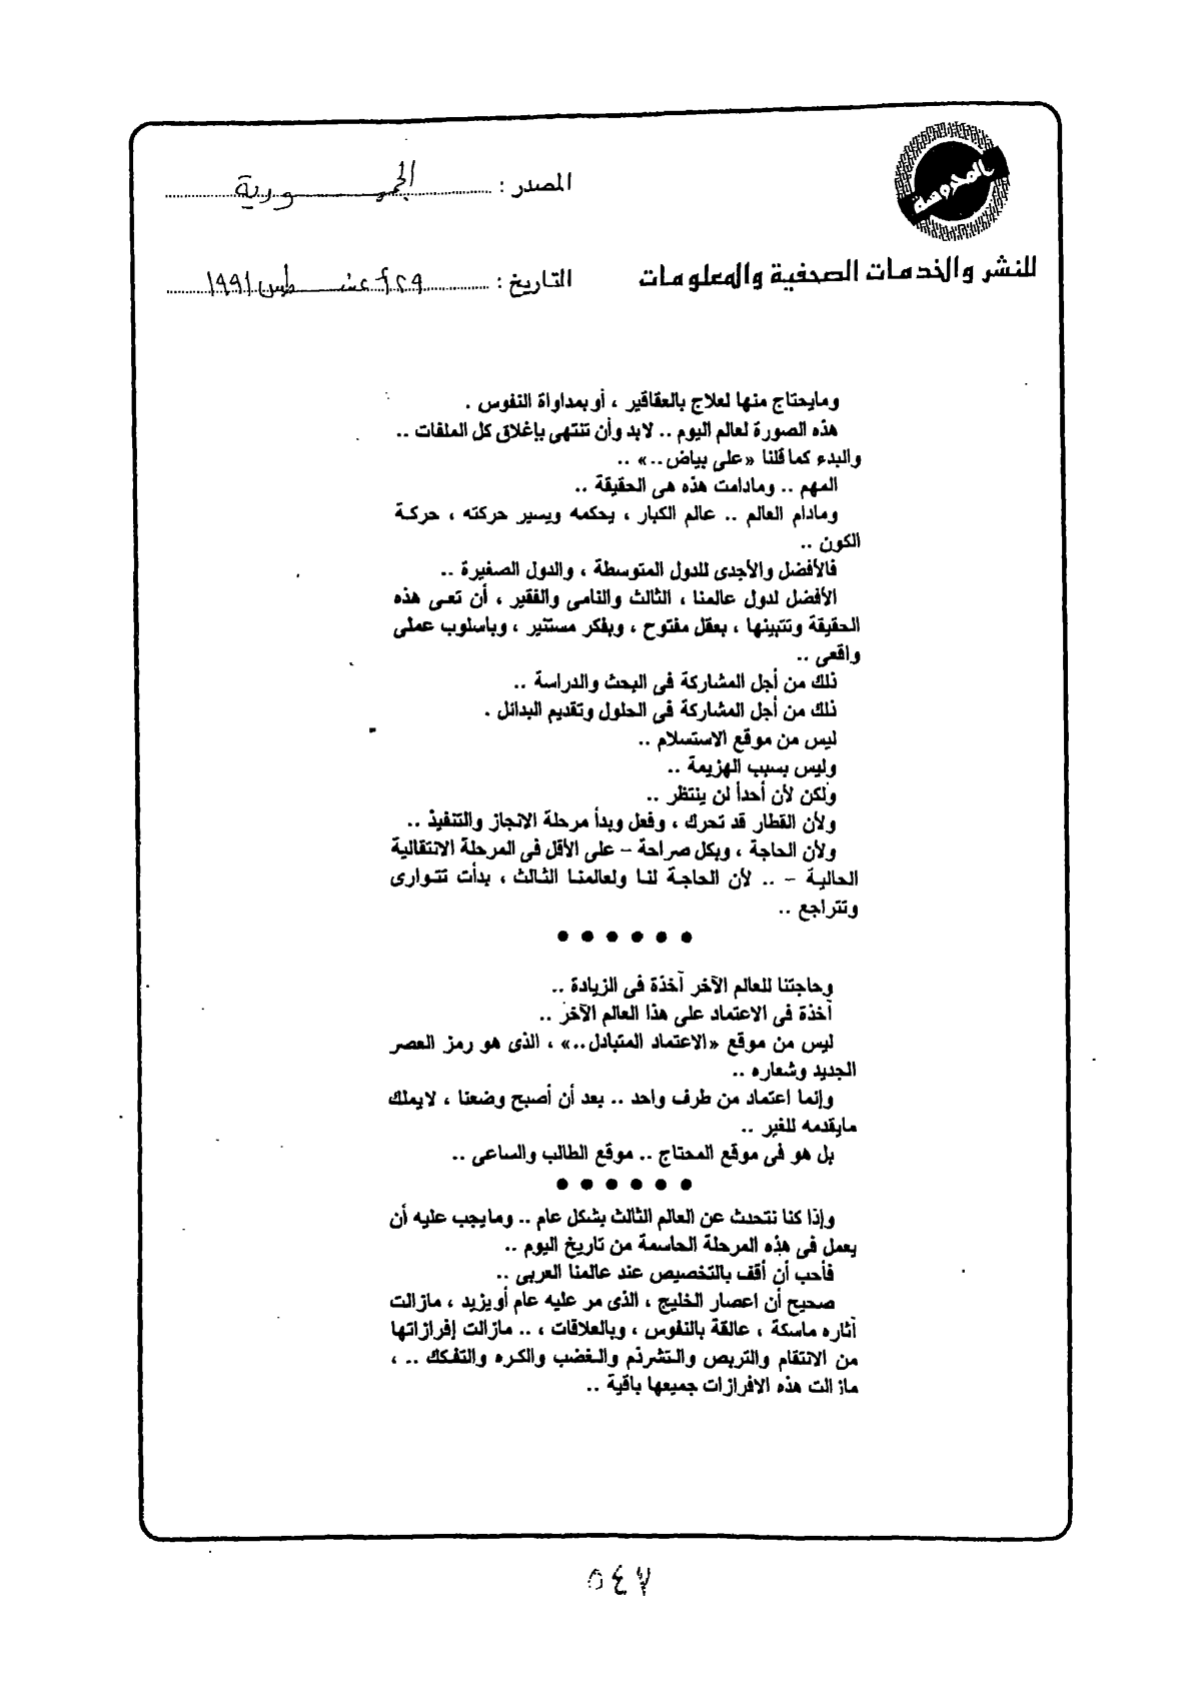 المحروسة
للنشر والخدمات الصحفية والمعلومات
المصدر : الجمهورية
التاريخ : ٢٩ أغسطس ١٩٩١
ومايحتاج منها لعلاج بالعقاقير ، أو بمداواة النفوس .
هذه الصورة لعالم اليوم .. لابد وأن تنتهى بإغلاق كل الملفات ..
والبدء كما قلنا «على بياض ..» ..
المهم .. ومادامت هذه هى الحقيقة ..
ومادام العالم .. عالم الكبار ، يحكمه ويسير حركته ، حركة
الكون ..
فالأفضل والأجدى للدول المتوسطة ، والدول الصغيرة ..
الأفضل لدول عالمنا ، الثالث والنامى والفقير ، أن تعى هذه
الحقيقة وتتبينها ، بعقل مفتوح ، وبفكر مستنير ، وباسلوب عملى
واقعى ..
ذلك من أجل المشاركة فى البحث والدراسة ..
ذلك من أجل المشاركة فى الحلول وتقديم البدائل .
ليس من موقع الاستسلام ..
وليس بسبب الهزيمة ..
ولكن لأن أحداً لن ينتظر ..
ولأن القطار قد تحرك ، وفعل وبدأ مرحلة الانجاز والتنفيذ ..
ولأن الحاجة ، وبكل صراحة – على الأقل فى المرحلة الانتقالية
الحالية – .. لأن الحاجة لنا ولعالمنا الثالث ، بدأت تتوارى
وتتراجع ..
● ● ● ● ● ●
وحاجتنا للعالم الآخر آخذة فى الزيادة ..
آخذة فى الاعتماد على هذا العالم الآخر ..
ليس من موقع «الاعتماد المتبادل ..» ، الذى هو رمز العصر
الجديد وشعاره ..
وإنما اعتماد من طرف واحد .. بعد أن أصبح وضعنا ، لايملك
مايقدمه للغير ..
بل هو فى موقع المحتاج .. موقع الطالب والساعى ..
● ● ● ● ● ●
وإذا كنا نتحدث عن العالم الثالث بشكل عام .. ومايجب عليه أن
يعمل فى هذه المرحلة الحاسمة من تاريخ اليوم ..
فأحب أن أقف بالتخصيص عند عالمنا العربى ..
صحيح أن اعصار الخليج ، الذى مر عليه عام أو يزيد ، مازالت
آثاره ماسكة ، عالقة بالنفوس ، وبالعلاقات ، .. مازالت إفرازاتها
من الانتقام والتربص والتشرذم والغضب والكره والتفكك .. ،
مازالت هذه الافرازات جميعها باقية ..
٥٤٧